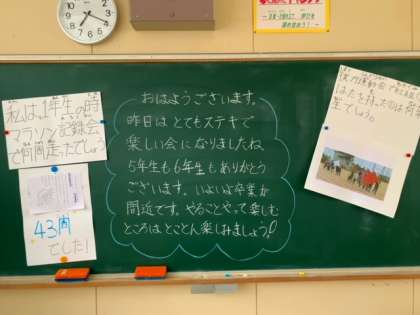 私は、1年生の時
マラソン記録会
で何周走ったでしょう
43周
でした！
おはようございます。
昨日は とてもステキで
楽しい会になりましたね
5年生も6年生もありがとう
ございます。いよいよ卒業が
間近です。やることやって楽しむ
ところはとことん楽しみましょう！
はたを持ったのは何
でしょう。